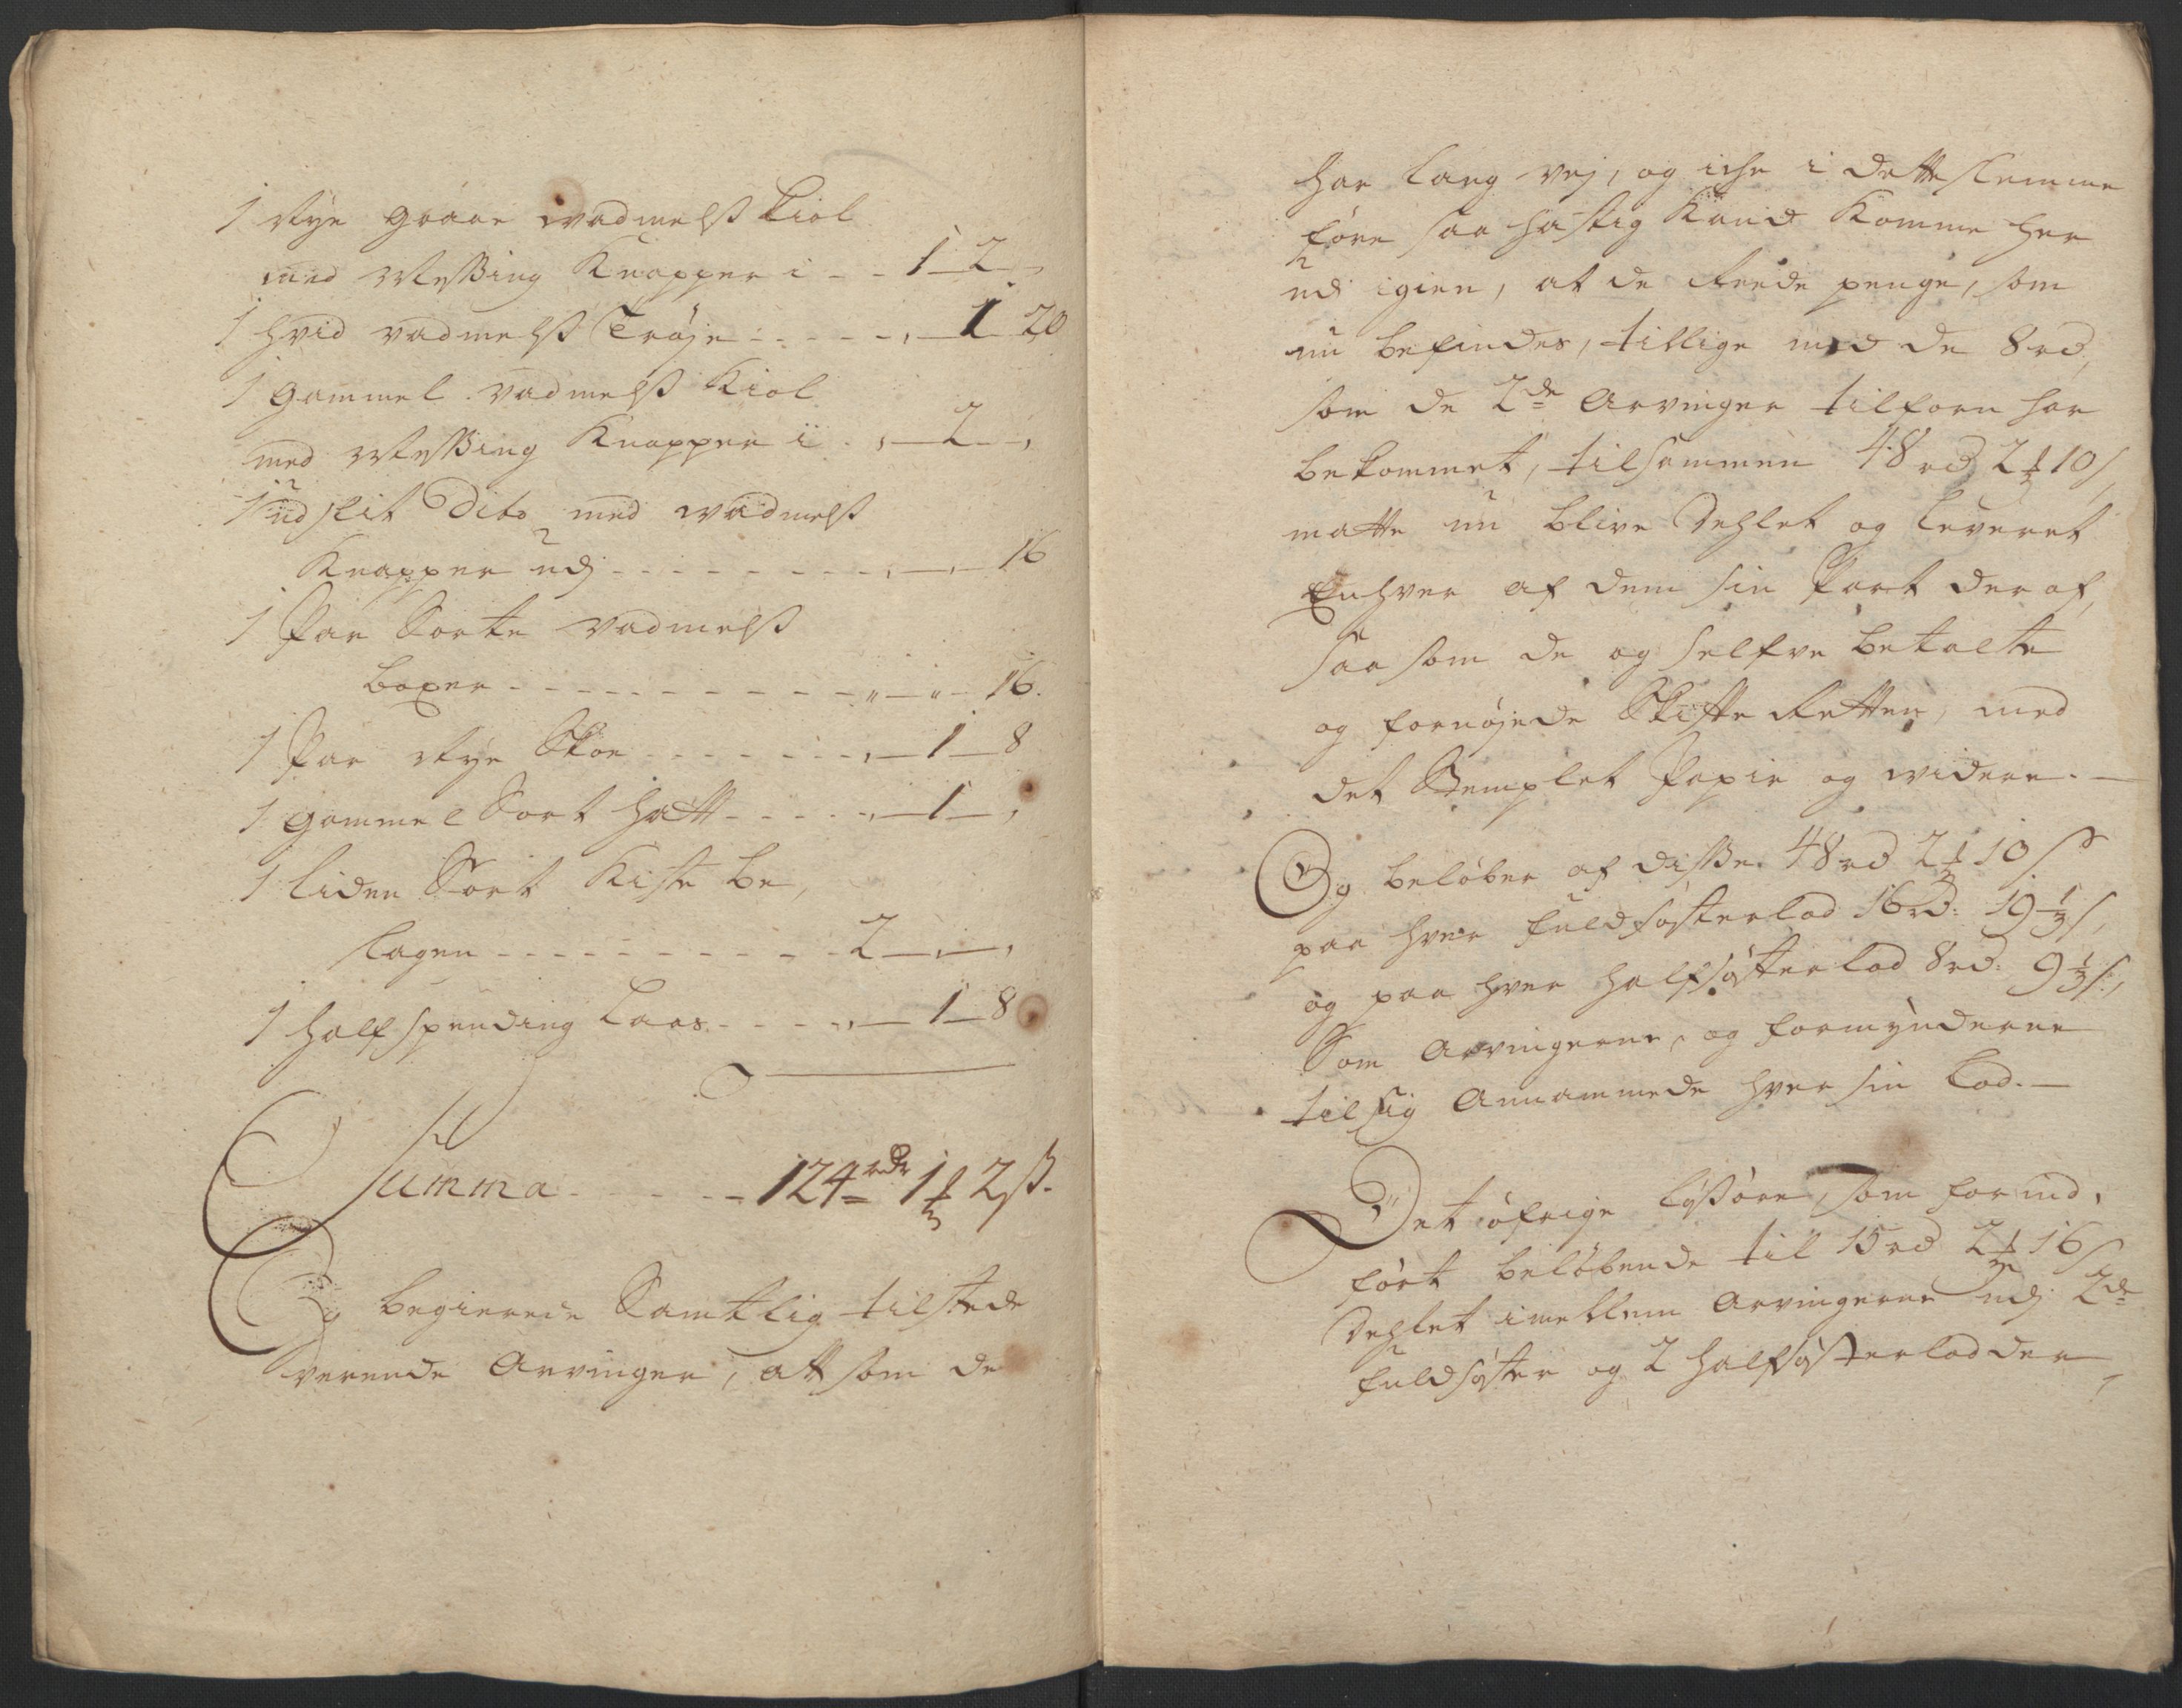 1 Nye graae wadmelß Kiol
med Meßing Knapper i - - 1 - 2 - ,
1 hvid vadmelß Trøje - - - - - , - 1 - 20
1 Gammel vadmelß Kiol
med Meßing Knapper i - , - 2 - ,
1 udslit Dito med wadmelß
Knapper udj - - - - - - - - - , - , - 16
1 Par Sorte vadmelß
boxer - - - - - - - - - - - " - " - 16.
1 Par Nye Skoe - - - - - - - , - 1 - 8
1 Gammel Sort hatt - - - - - , - 1 - ,
1 liden Sort Kiste be,
slagen - - - - - - - - - - 2 - , - ,
1 half spending Laas - - - - " - 1 - 8
Summa - - - - - 124 rdr 1 ƒ 2 ß.
Og begierede Samtlig tilstede
verende Arvinger, att som de
har lang vej, og iche i dette slemme
føre saa hastig Kand Komme her
ud igien, at de Reede penge, som
nu befindes, tillige med de 8 rd,
som de 2de Arvinger tilforn har
bekommet, tilsammen 48 rd 2 ƒ 10 s,
motte nu blive Dehlet og leveret
Enhver af dem sin Part der af,
saa som de og selfve betalte
og fornøjede Skifte Retten, med
det Stemplet Papir og widere. -
Og beløber af disse 48 rd 2 ƒ 10 s
paa hver fuldsøsterlod 16 rd: 19 1/3 s,
og paa hver halfsøsterlod 8 rd: 9 2/3 s:,
Som Arvingerne, og formynderne
til sig Annammede hver sin Lod. -
Det øfrige løsøre, som for ind,
ført beløbende til 15 rd 2 ƒ 16 s
Dehlet imellem Arvingerne udj 2de
fuldsøster og 2 halfsøsterlodder,